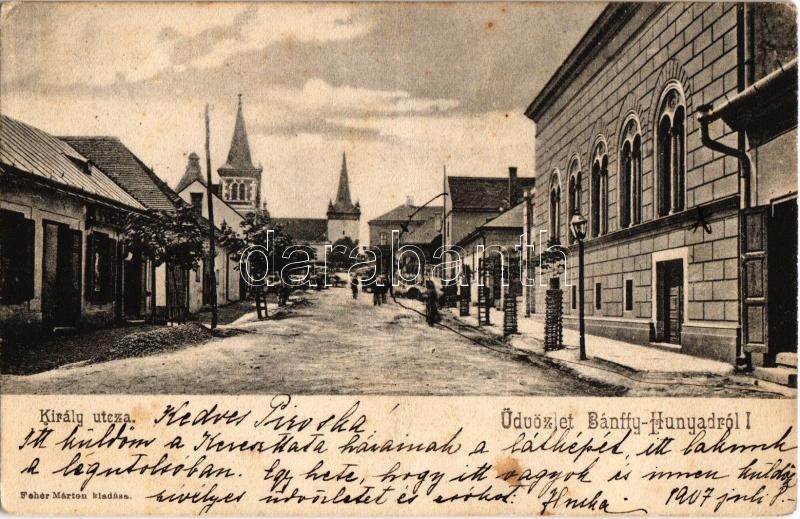 darabanth
Király utcza.
Üdvözlet Bánffy-Hunyadról !
Kedves Piroska
Itt küldöm a Kereszttata házainak a látképét, itt lakunk
a légutolsóban. Egy hete, hogy itt vagyok és innen küldöm
szivélyes üdvözletet és csókot. 1907 juli 8.
Fehér Márton kiadása.